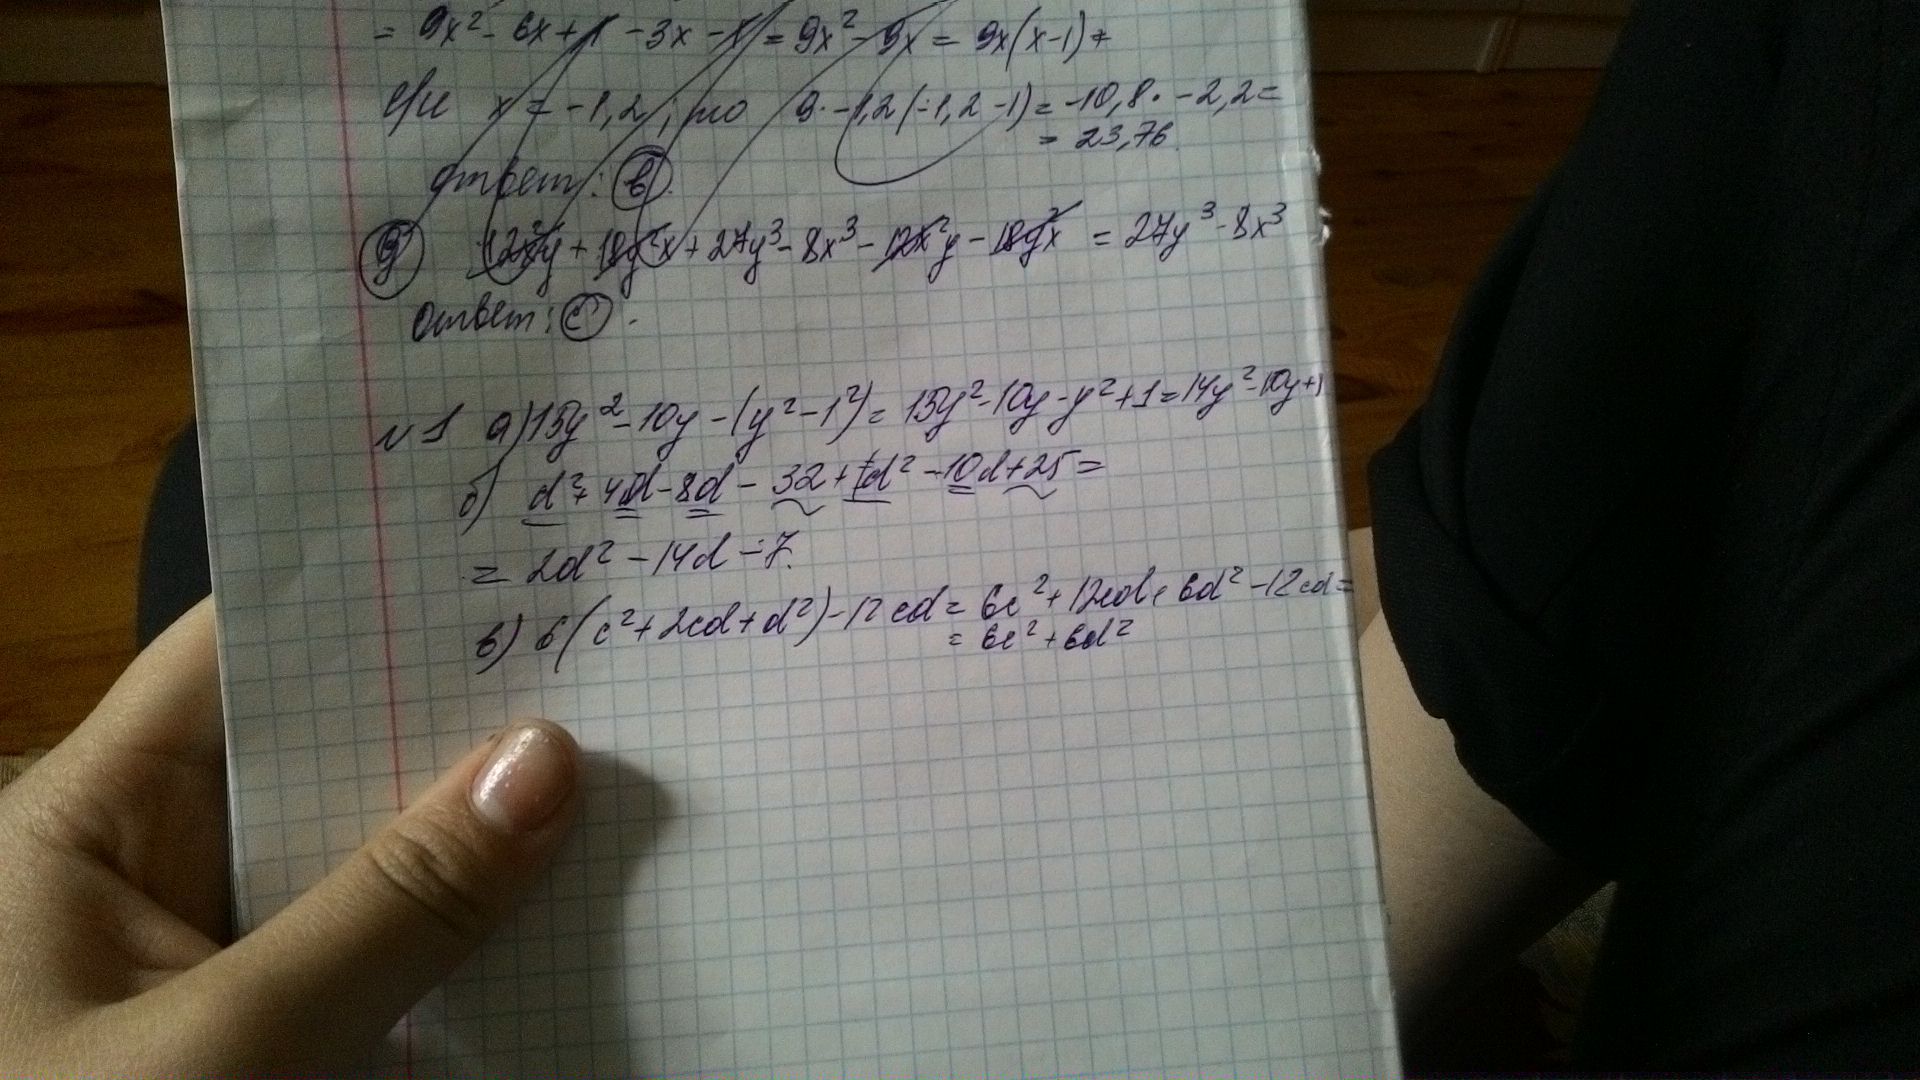 = 9x² - 6x + 1 - 3x - 1 = 9x² - 9x = 9x(x-1) =
При x = -1,2, то 9· -1,2(-1,2 -1) = -10,8· -2,2 =
= 23,76.
Ответ: в.
9 12x²y + 18y²x + 27y³ - 8x³ - 12x²y - 18y²x = 27y³ - 8x³
Ответ: с.
№1 а) 15y² - 10y - (y² - 1²) = 15y² - 10y - y² + 1 = 14y² - 10y + 1
б) d² + 4d - 8d - 32 + d² - 10d + 25 =
= 2d² - 14d - 7.
в) 6(c² + 2cd + d²) - 12cd = 6c² + 12cd + 6d² - 12cd =
= 6c² + 6d²